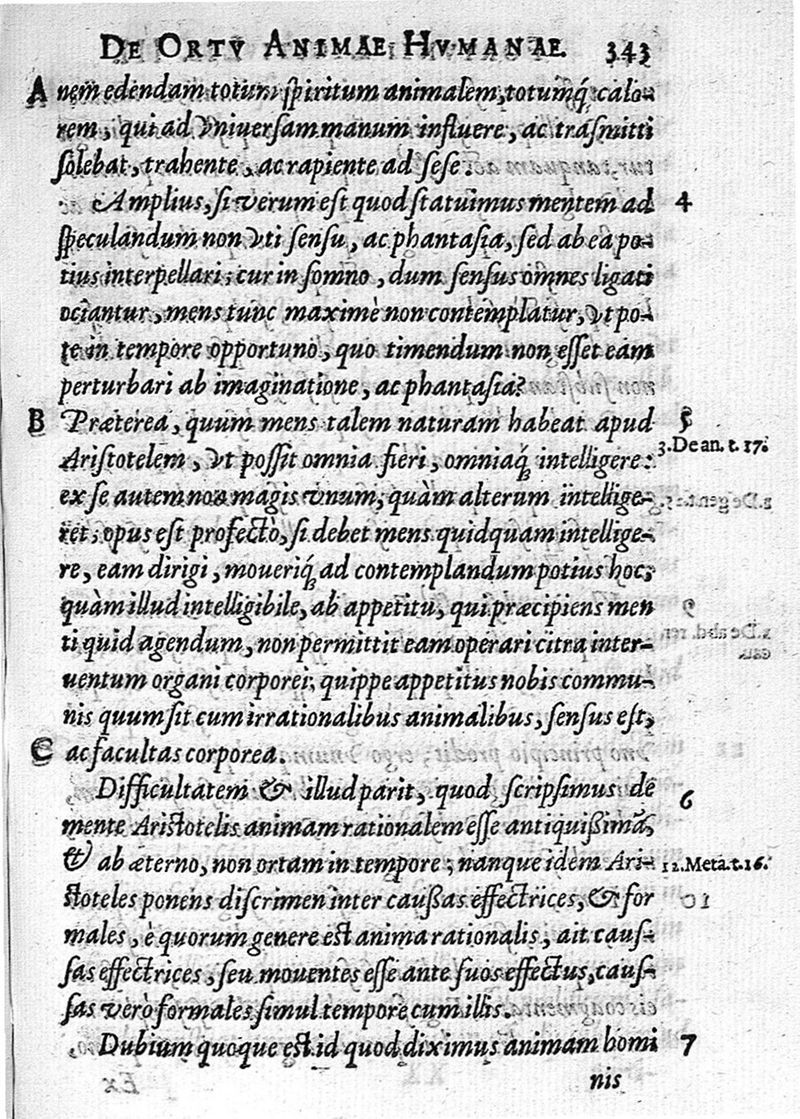 DE ORTV ANIMAE HVMANAE. 343
A nem edendam totum ſpiritum animalem, totumq́; calo-
rem, qui ad vniuerſam manum influere, ac trãſmitti
ſolebat, trahente, ac rapiente ad ſeſe.
Amplius, ſi verum eſt quod ſtatuimus mentem ad 4
ſpeculandum non vti ſenſu, ac phantaſia, ſed ab ea po-
tius interpellari; cur in ſomno, dum ſenſus omnes ligati
ociantur, mens tunc maximè non contemplatur, vt po-
te in tempore opportuno, quo timendum non eſſet eam
perturbari ab imaginatione, ac phantaſia?
B Præterea, quum mens talem naturam habeat apud 5
Ariſtotelem, vt poſſit omnia fieri, omniaq́; intelligere: 3. De an. t. 17.
ex ſe autem non magis vnum, quàm alterum intellige-
ret; opus eſt profectò, ſi debet mens quidquam intellige-
re, eam dirigi, moueriq́; ad contemplandum potius hoc,
quàm illud intelligibile, ab appetitu, qui præcipiens men
ti quid agendum, non permittit eam operari citra inter-
uentum organi corporei; quippe appetitus nobis commu-
nis quum ſit cum irrationalibus animalibus, ſenſus eſt,
C ac facultas corporea.
Difficultatem & illud parit, quod ſcripſimus de 6
mente Ariſtotelis animam rationalem eſſe antiquißimã,
& ab æterno, non ortam in tempore; nanque idem Ari- 12. Meta. t. 16.
ſtoteles ponens diſcrimen inter cauſſas effectrices, & for
males, è quorum genere eſt anima rationalis, ait cauſ-
ſas effectrices, ſeu mouentes eſſe ante ſuos effectus, cauſ-
ſas verò formales ſimul tempore cum illis.
Dubium quoque eſt id quod diximus animam homi 7
nis